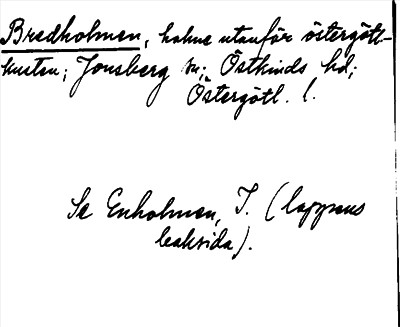 Bredholmen, holme utanför östergötl-
kusten; Jonsberg sn; Östkinds hd;
Östergötl. l.
Se Enholmen, I. (lappens
baksida).